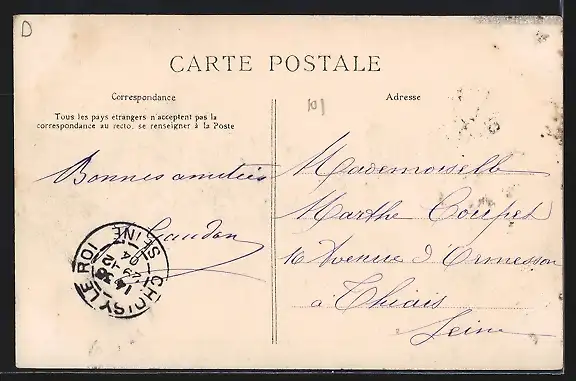 D
CARTE POSTALE
Correspondance
Tous les pays étrangers n'acceptent pas la
correspondance au recto, se renseigner à la Poste
Bonnes amitiés
101
Adresse
Mademoiselle
Marthe Coupet
16 Avenue d'Ormesson
à Thiais
Seine
CHOISY-LE-ROI
SEINE